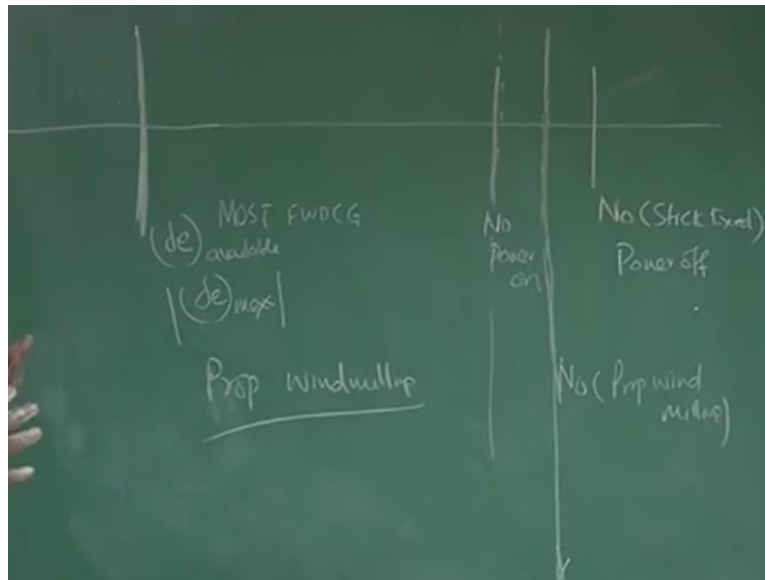 MOST FWD CG
(de) available
|(de) max|
Prop windmilling
No
Power
on
No (Stick Fixed)
Power off
No (Prop wind
milling)